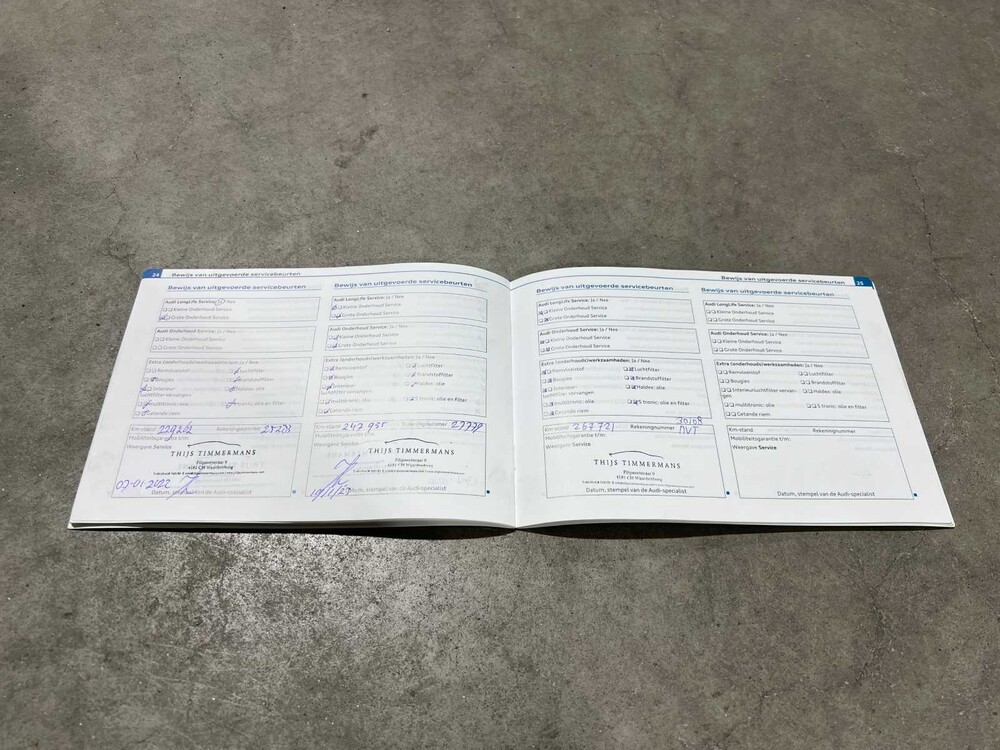 24 Bewijs van uitgevoerde servicebeurten
Bewijs van uitgevoerde servicebeurten
Audi LongLife Service: Ja / Nee
Kleine Onderhoud Service
Grote Onderhoud Service
Audi Onderhoud Service: Ja / Nee
Kleine Onderhoud Service
Grote Onderhoud Service
Extra (onderhouds)werkzaamheden: Ja / Nee
Remvloeistof
Luchtfilter
Bougies
Brandstoffilter
Interieur-
Haldex: olie
luchtfilter vervangen
multitronic: olie
S tronic: olie en filter
Getande riem
Km-stand
Rekeningnummer
Mobiliteitsgarantie t/m:
Weergave Service
THIJS TIMMERMANS
Pilgawestraat 9
4181 CH Waardenburg
07-01-2022
Datum, stempel van de Audi-specialist
Bewijs van uitgevoerde servicebeurten
Audi LongLife Service: Ja / Nee
Kleine Onderhoud Service
Grote Onderhoud Service
Audi Onderhoud Service: Ja / Nee
Kleine Onderhoud Service
Grote Onderhoud Service
Extra (onderhouds)werkzaamheden: Ja / Nee
Remvloeistof
Luchtfilter
Bougies
Brandstoffilter
Interieur-
Haldex: olie
luchtfilter vervangen
multitronic: olie
S tronic: olie en filter
Getande riem
Km-stand 247 955 Rekeningnummer
Mobiliteitsgarantie t/m:
Weergave Service
THIJS TIMMERMANS
Pilgawestraat 9
4181 CH Waardenburg
Datum, stempel van de Audi-specialist
Bewijs van uitgevoerde servicebeurten 25
Bewijs van uitgevoerde servicebeurten
Audi LongLife Service: Ja / Nee
Kleine Onderhoud Service
Grote Onderhoud Service
Audi Onderhoud Service: Ja / Nee
Kleine Onderhoud Service
Grote Onderhoud Service
Extra (onderhouds)werkzaamheden: Ja / Nee
Remvloeistof
Luchtfilter
Bougies
Brandstoffilter
Interieur-
Haldex: olie
luchtfilter vervangen
multitronic: olie
S tronic: olie en filter
Getande riem
30168
Km-stand 267 721 Rekeningnummer NVT
Mobiliteitsgarantie t/m:
Weergave Service
THIJS TIMMERMANS
Pilgawestraat 9
4181 CH Waardenburg
Datum, stempel van de Audi-specialist
Bewijs van uitgevoerde servicebeurten
Audi LongLife Service: Ja / Nee
Kleine Onderhoud Service
Grote Onderhoud Service
Audi Onderhoud Service: Ja / Nee
Kleine Onderhoud Service
Grote Onderhoud Service
Extra (onderhouds)werkzaamheden: Ja / Nee
Remvloeistof
Luchtfilter
Bougies
Brandstoffilter
Interieurluchtfilter vervan-
gen
Haldex: olie
multitronic: olie
S tronic: olie en filter
Getande riem
Km-stand Rekeningnummer
Mobiliteitsgarantie t/m:
Weergave Service
Datum, stempel van de Audi-specialist